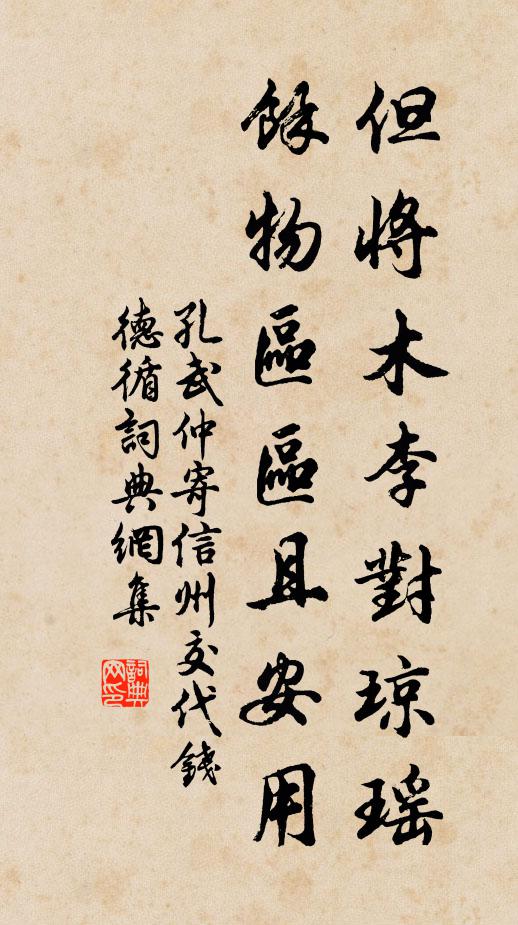 但將木李對琼瑶
餘物區區且安用
孔武仲寄信州交代錢
德循詞典網集
詞典网印